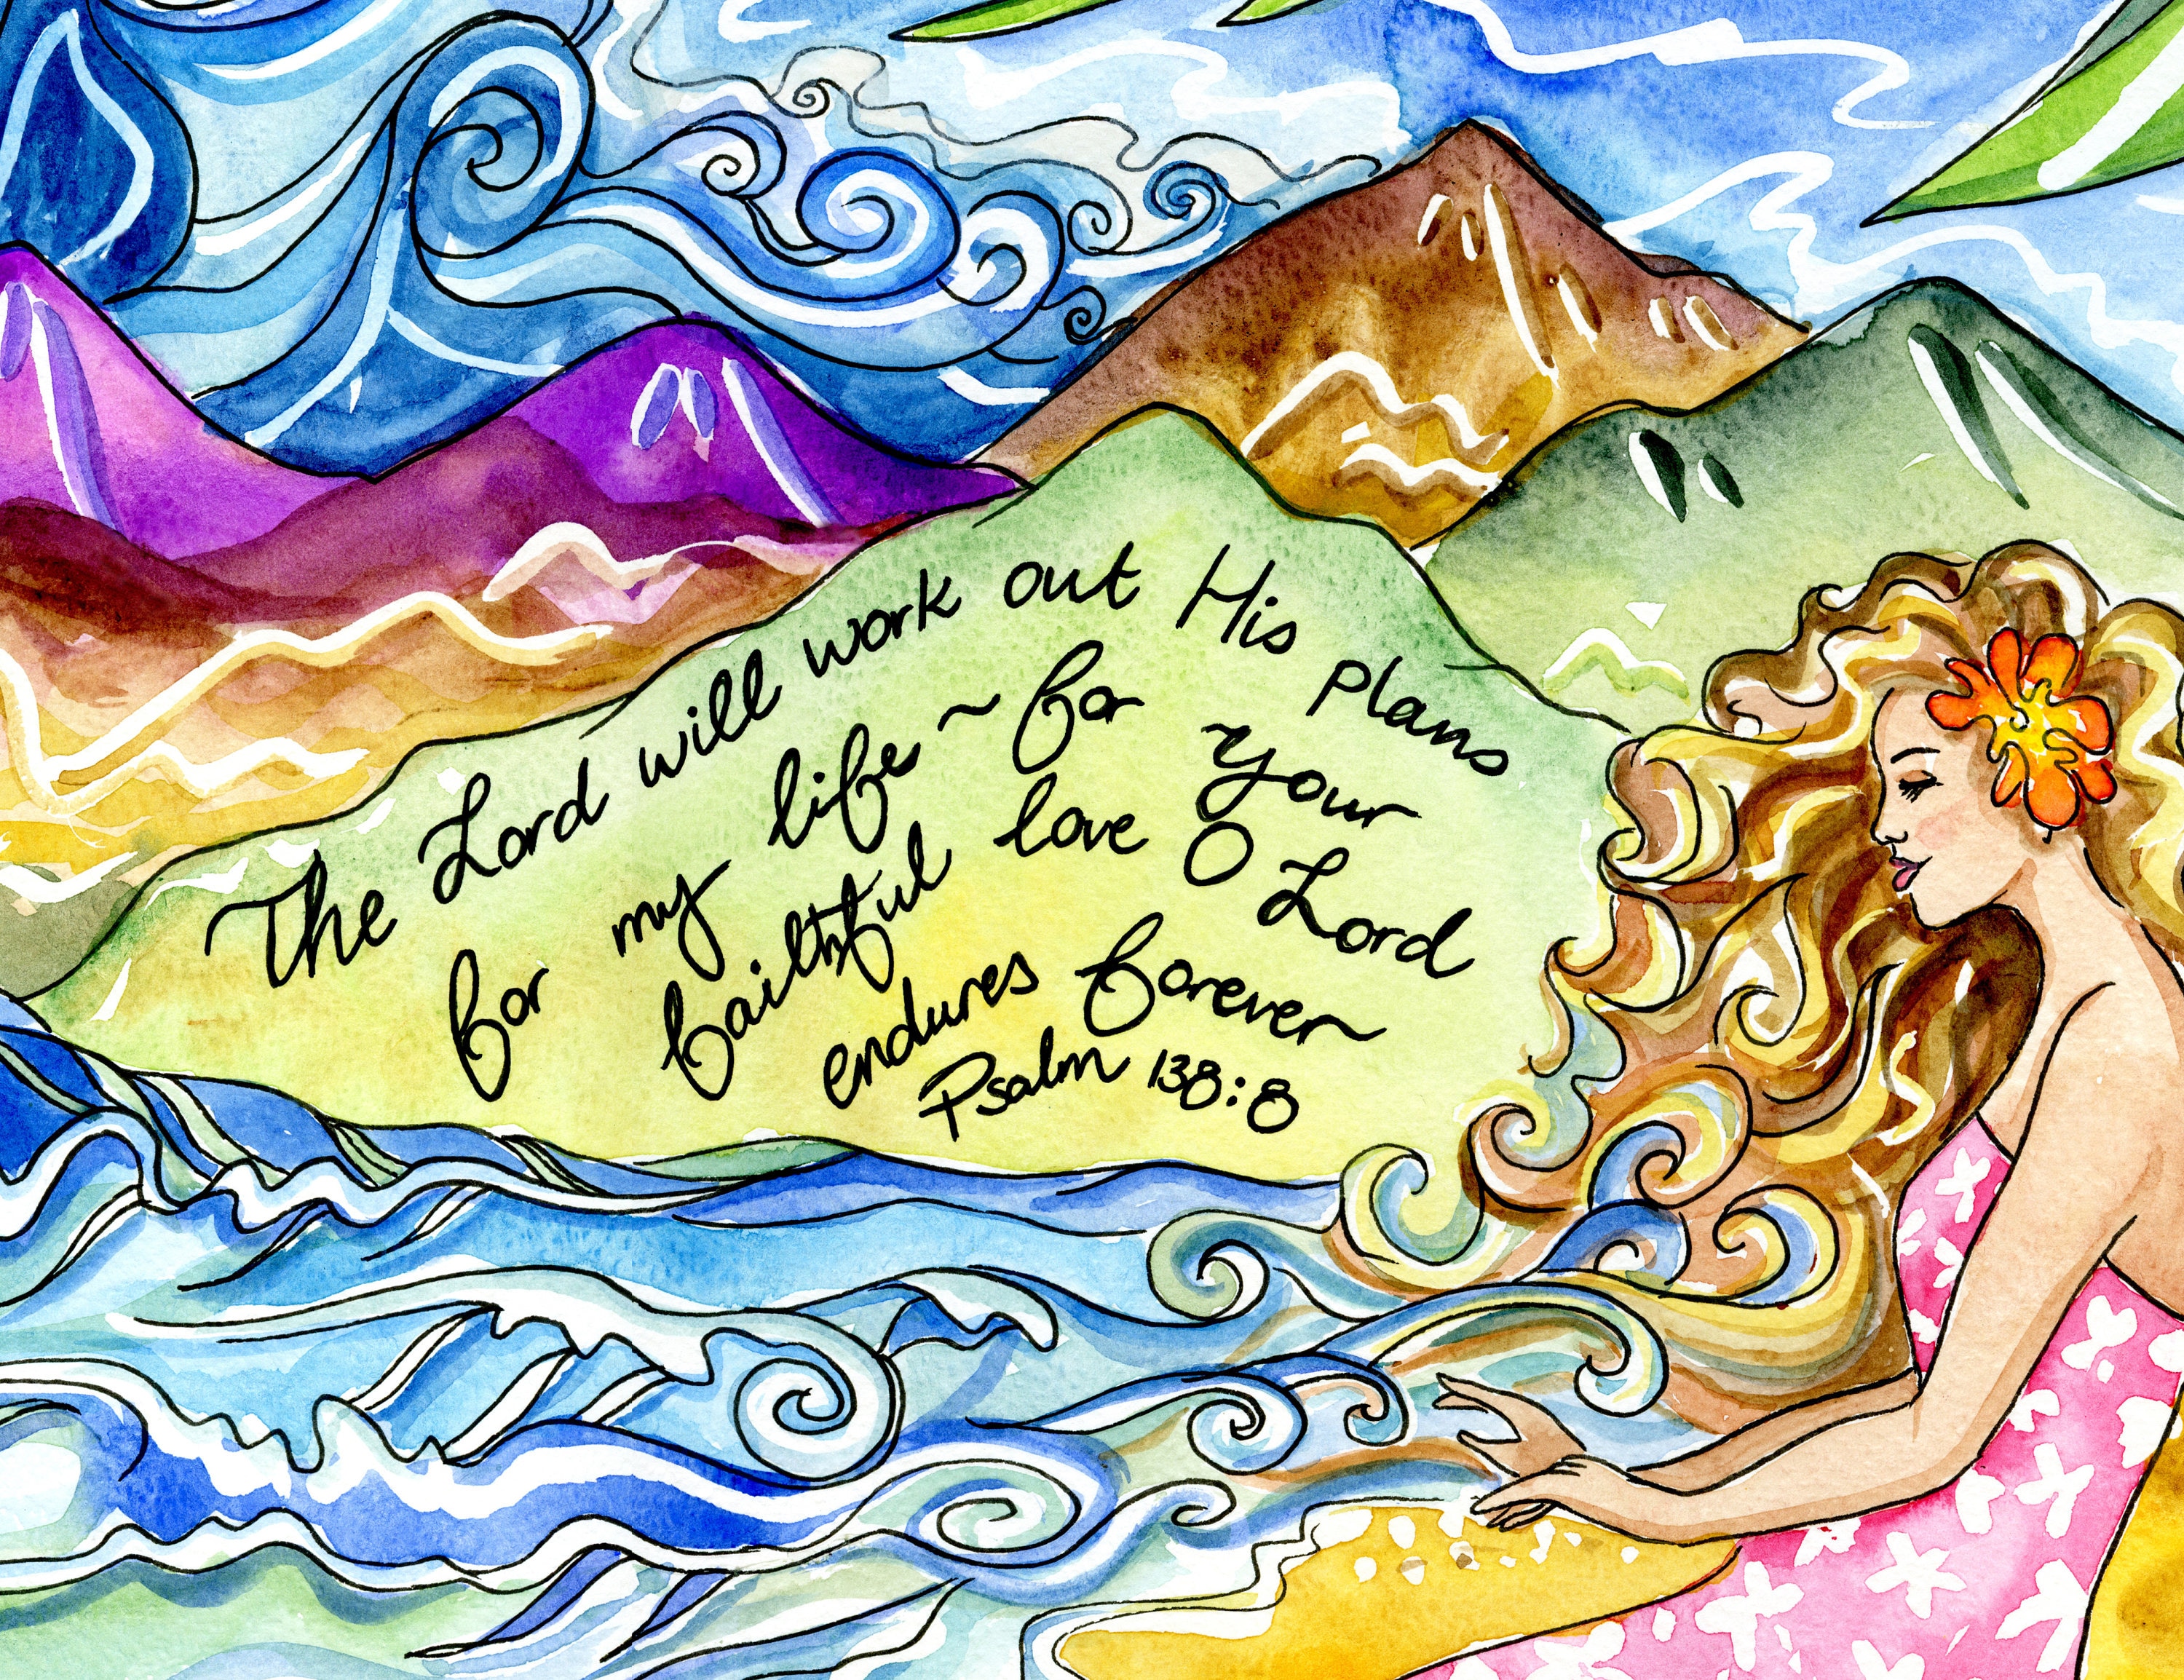 The Lord will work out His plans
for my life ~ for your
faithful love O Lord
endures forever
Psalm 138:8